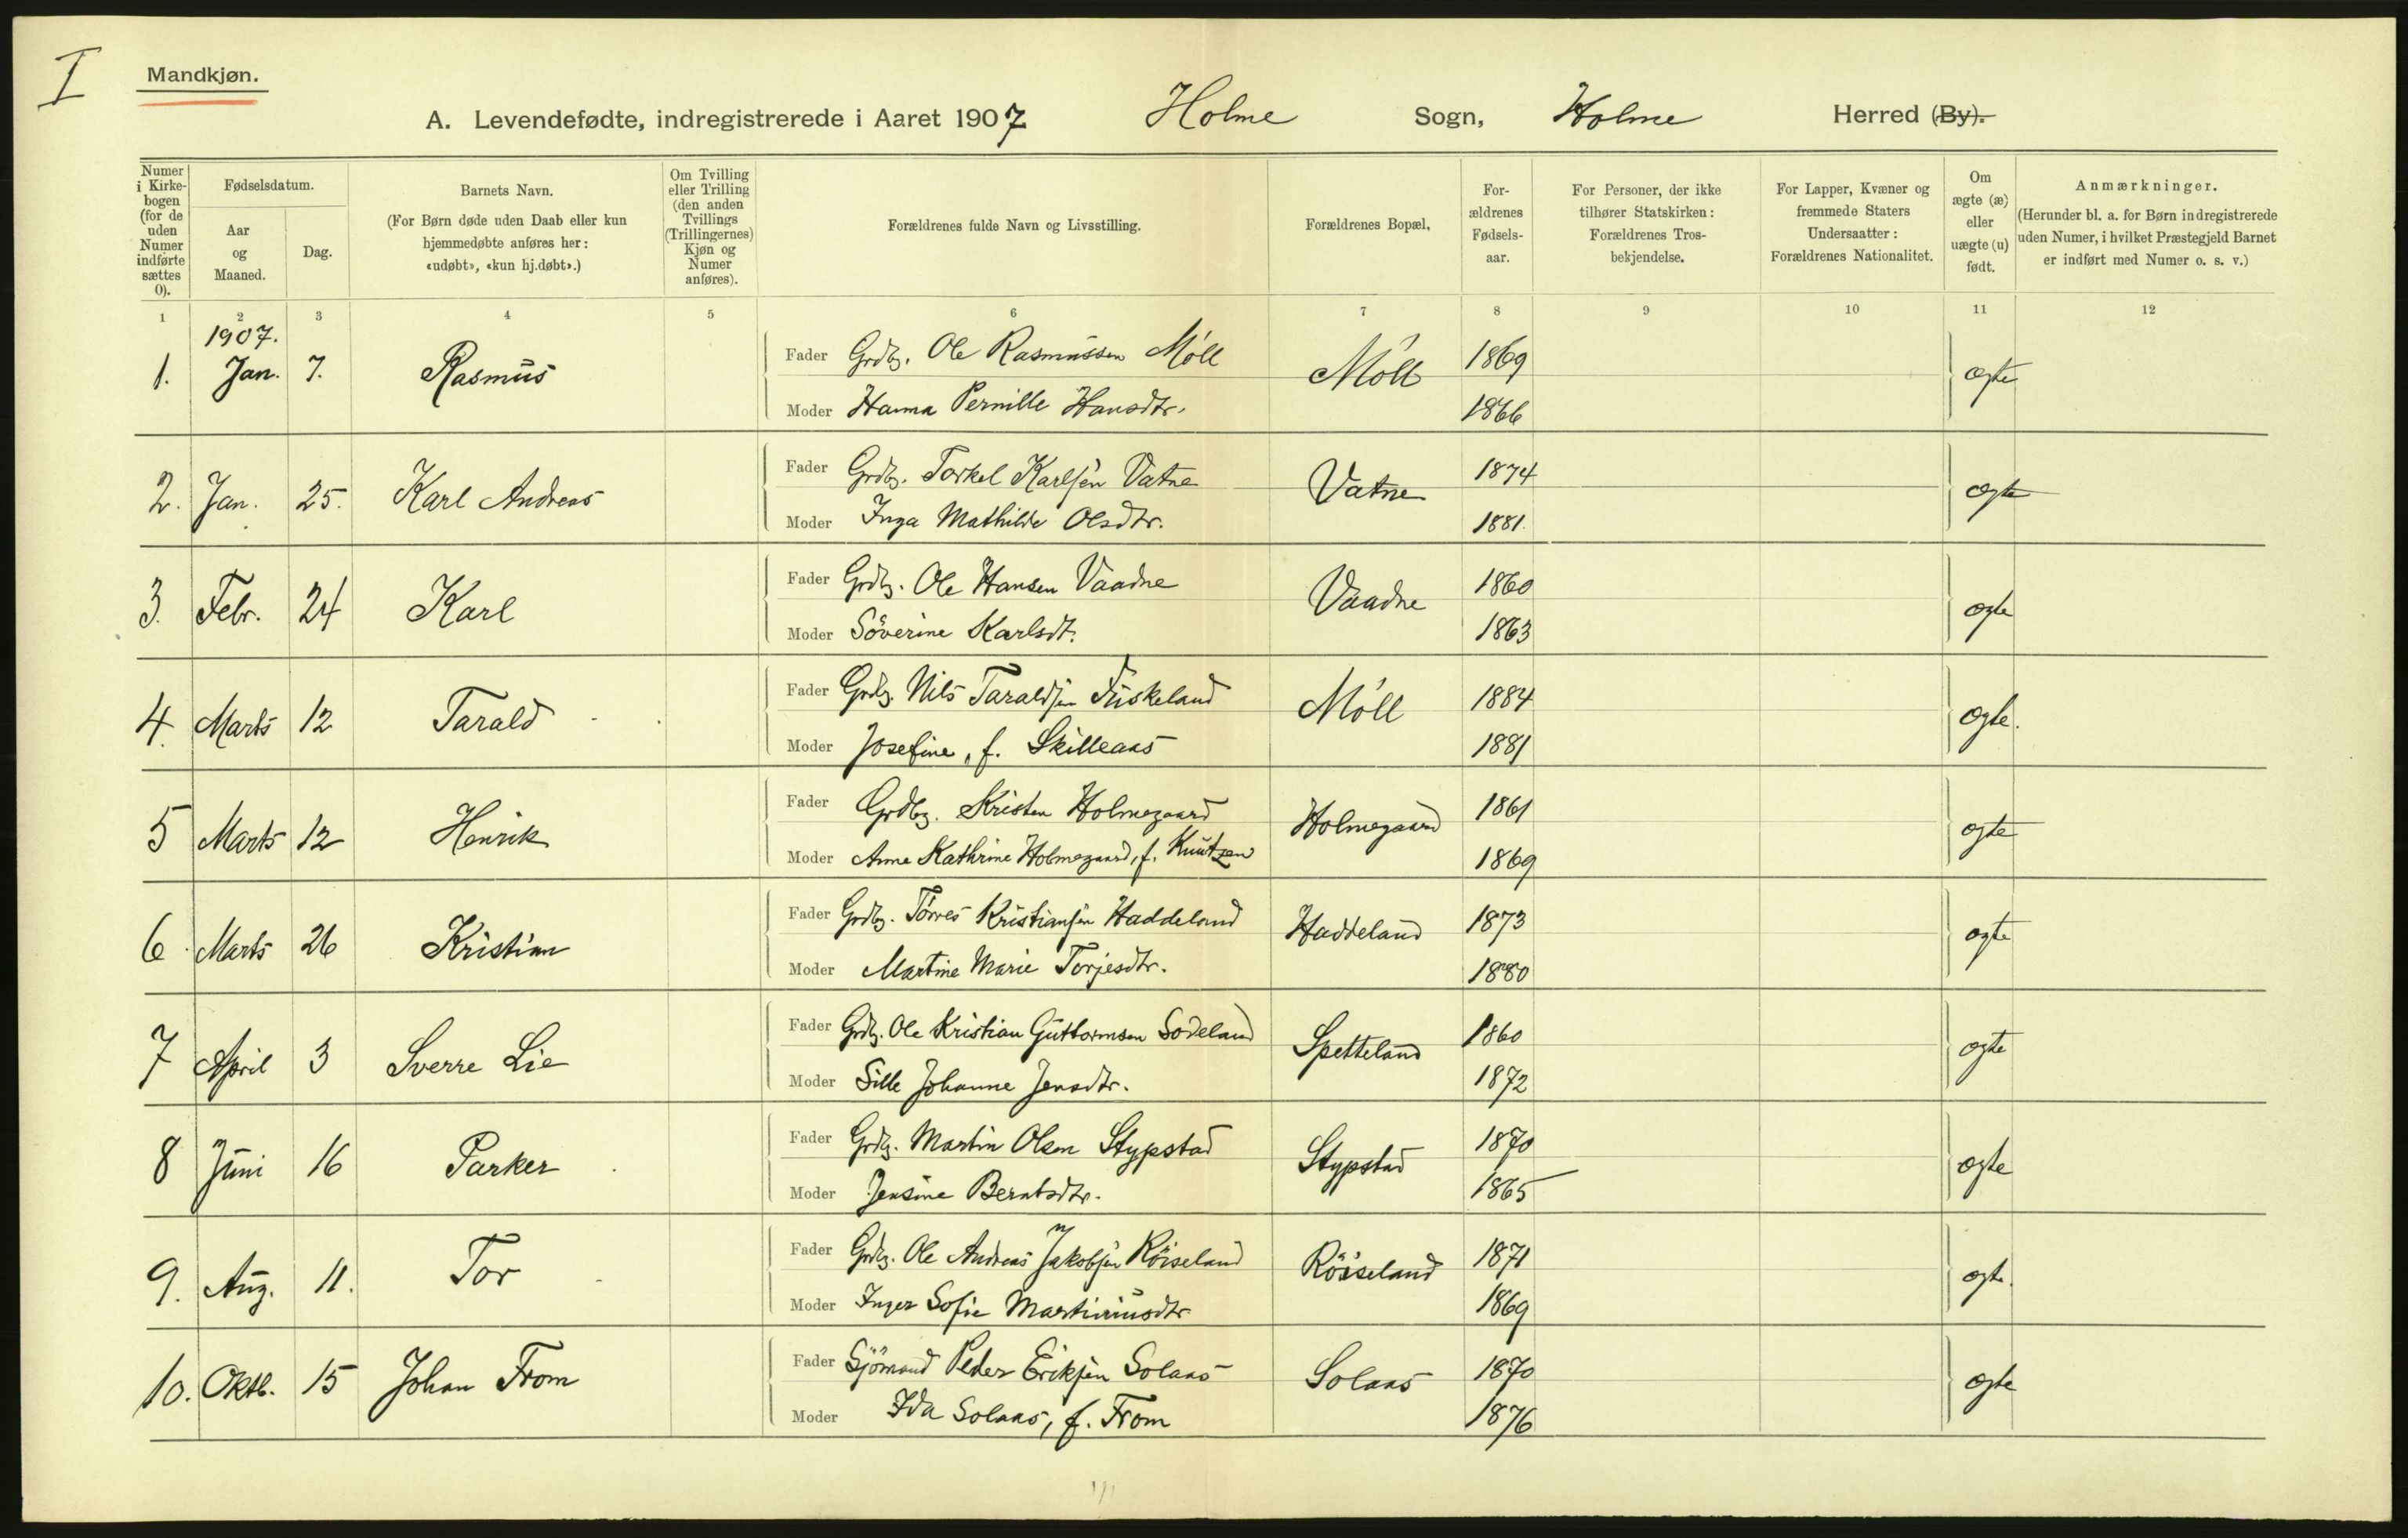 I
Mandkjøn.
A. Levendefødte, indregistrerede i Aaret 1907 Holme Sogn, Holme Herred (By).
Numer i Kirkebogen (for de uden Numer indførte sættes 0).
Fødselsdatum.
Aar og Maaned.
Dag.
Barnets Navn.
(For Børn døde uden Daab eller kun
hjemmedøbte anføres her:
«udøbt», «kun hj.døbt».)
Om Tvilling
eller Trilling
(den anden
Tvillings
(Trillingernes)
Kjøn og
Numer
anføres).
Forældrenes fulde Navn og Livsstilling.
Forældrenes Bopæl.
For-
ældrenes
Fødsels-
aar.
For Personer, der ikke
tilhører Statskirken:
Forældrenes Tros-
bekjendelse.
For Lapper, Kvæner og
fremmede Staters
Undersaatter:
Forældrenes Nationalitet.
Om
ægte (æ)
eller
uægte (u)
født.
Anmærkninger.
(Herunder bl. a. for Børn indregistrerede
uden Numer, i hvilket Præstegjeld Barnet
er indført med Numer o. s. v.)
1 2 3 4 5 6 7 8 9 10 11 12
1907.
1. Jan. 7. Rasmus Fader Grdbr. Ole Rasmussen Møll Møll 1869 ægte
Moder Hanna Pernille Hansdtr. 1866
2. Jan. 25. Karl Andreas Fader Grdbr. Torkel Karlsen Vatne Vatne 1874 ægte
Moder Inga Mathilde Olsdtr. 1881.
3. Febr. 24 Karl Fader Grdbr. Ole Hansen Vaadne Vaadne 1860 ægte
Moder Söverine Karlsdt. 1863
4. Marts 12 Tarald Fader Grdbr. Nils Taraldsen Fuskeland Møll 1884 ægte.
Moder Josefine, f. Skilleaas 1881
5 Marts 12 Henrik Fader Grdbr. Kristen Holmegaard Holmegaard 1861 ægte
Moder Anne Kathrine Holmegaard, f. Knutzen 1869
6. Marts 26 Kristian Fader Grdbr. Törres Kristiansen Haddeland Haddeland 1873 ægte
Moder Martine Marie Torjesdtr. 1880
7 April 3 Sverre Lie Fader Grdbr. Ole Kristian Guttormsen Sodeland Spetteland 1860 ægte
Moder Sille Johanne Jensdtr. 1872
8 Juni 16 Parker Fader Grdbr. Martin Olsen Stypstad Stypstad 1870 ægte
Moder Jensine Berntsdtr. 1865
9. Aug. 11. Tor Fader Grdbr. Ole Andreas Jakobsen Röiseland Röiseland 1871 ægte.
Moder Inger Sofie Martiniusdtr 1869
10. Oktb. 15 Johan From Fader Sjömand Peder Eriksen Solaas Solaas 1870 ægte
Moder Ida Solaas, f. From 1876